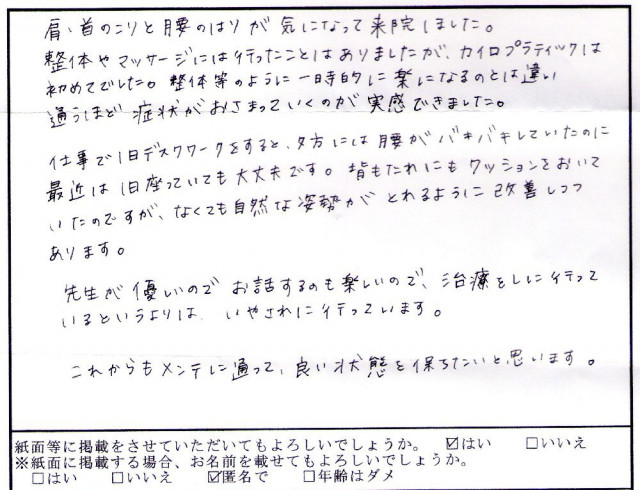 肩、首のこりと腰のはりが気になって来院しました。
整体やマッサージには行ったことはありましたが、カイロプラティックは
初めてでした。整体等のように一時的に楽になるのとは違い
通うほど症状がおさまっていくのが実感できました。
仕事で1日デスクワークをすると、夕方には腰がバキバキしていたのに
最近は1日座っていても大丈夫です。背もたれにもクッションをおいて
いたのですが、なくても自然な姿勢がとれるように改善しつつ
あります。
先生が優しいのでお話するのも楽しいので、治療をしに行って
いるというよりは、いやされに行っています。
これからもメンテしに通って、良い状態を保ちたいと思います。
紙面等に掲載をさせていただいてもよろしいでしょうか。 ☑はい □いいえ
※紙面に掲載する場合、お名前を載せてもよろしいでしょうか。
□はい □いいえ ☑匿名で □年齢はダメ